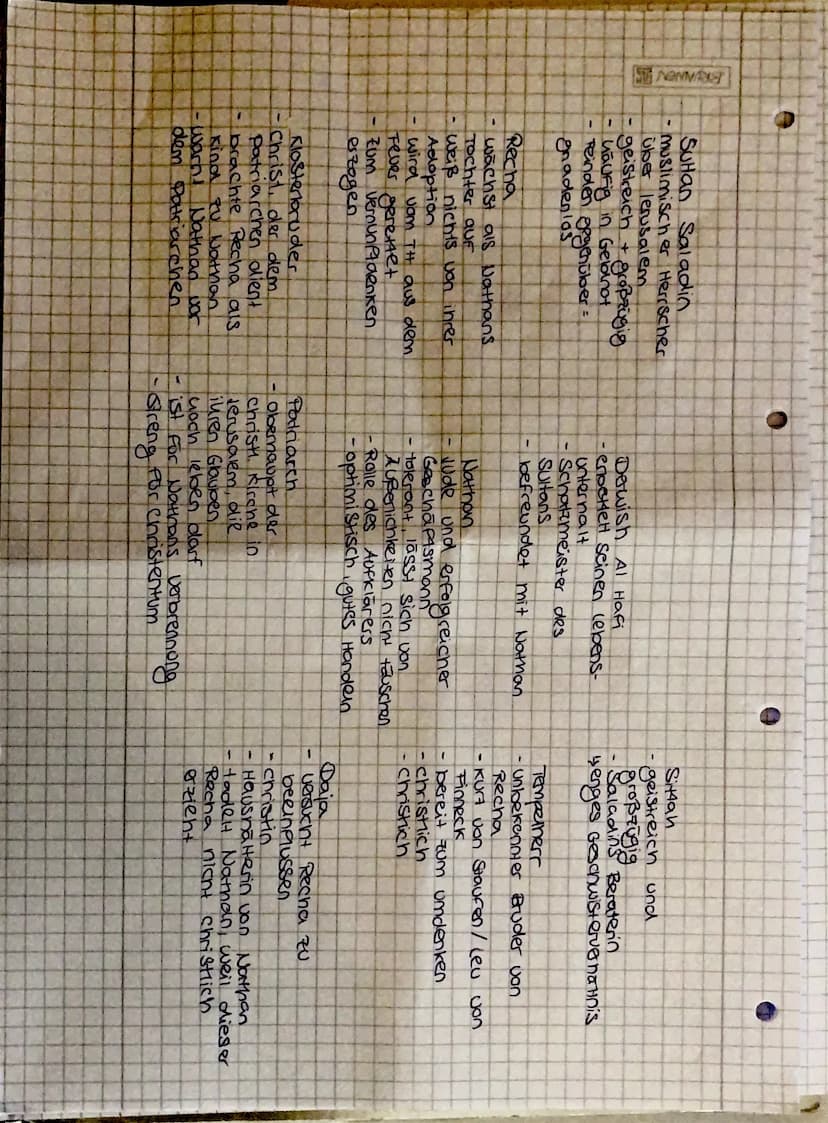 BRUNNEN
Sultan Saladin
- muslimischer Herrscher
über Jerusalem
- geistreich + großzügig
- häufig in Geldnot
- Feinden gegenüber =
gnadenlos
Derwish Al Hafi
- erbettelt seinen Lebens-
unterhalt
- Schatzmeister des
Sultans
- befreundet mit Nathan
Sittah
- geistreich und
großzügig
- Saladins Beraterin
enges Geschwisterverhältnis
Recha
- wächst als Nathans
Tochter auf
- weiß nichts von ihrer
Adoption
- wird vom TH aus dem
Feuer gerettet
- zum Vernunftdenken
erzogen
Nathan
- Jude und erfolgreicher
Geschäftsmann
- tolerant, lässt sich von
Äußerlichkeiten nicht täuschen
- Rolle des Aufklärers
- optimistisch, gutes Handeln
Tempelherr
- unbekannter Bruder von
Recha
- Kurt von Staufen / Leu von
Finneck
- bereit zum umdenken
- christlich
- christlich
Klosterbruder
- Christ, der dem
Patriarchen dient
- brachte Recha als
Kind zu Nathan
- warnt Nathan vor
dem Patriarchen
Patriarch
- oberhaupt der
christl. Kirche in
Jerusalem, die
ihren Glauben
noch leben darf
- ist für Nathans Verbrennung
- streng für Christentum
Daja
- versucht Recha zu
beeinflussen
- christin
- Haushälterin von Nathan
- tadelt Nathan, weil dieser
Recha nicht christlich
erzieht